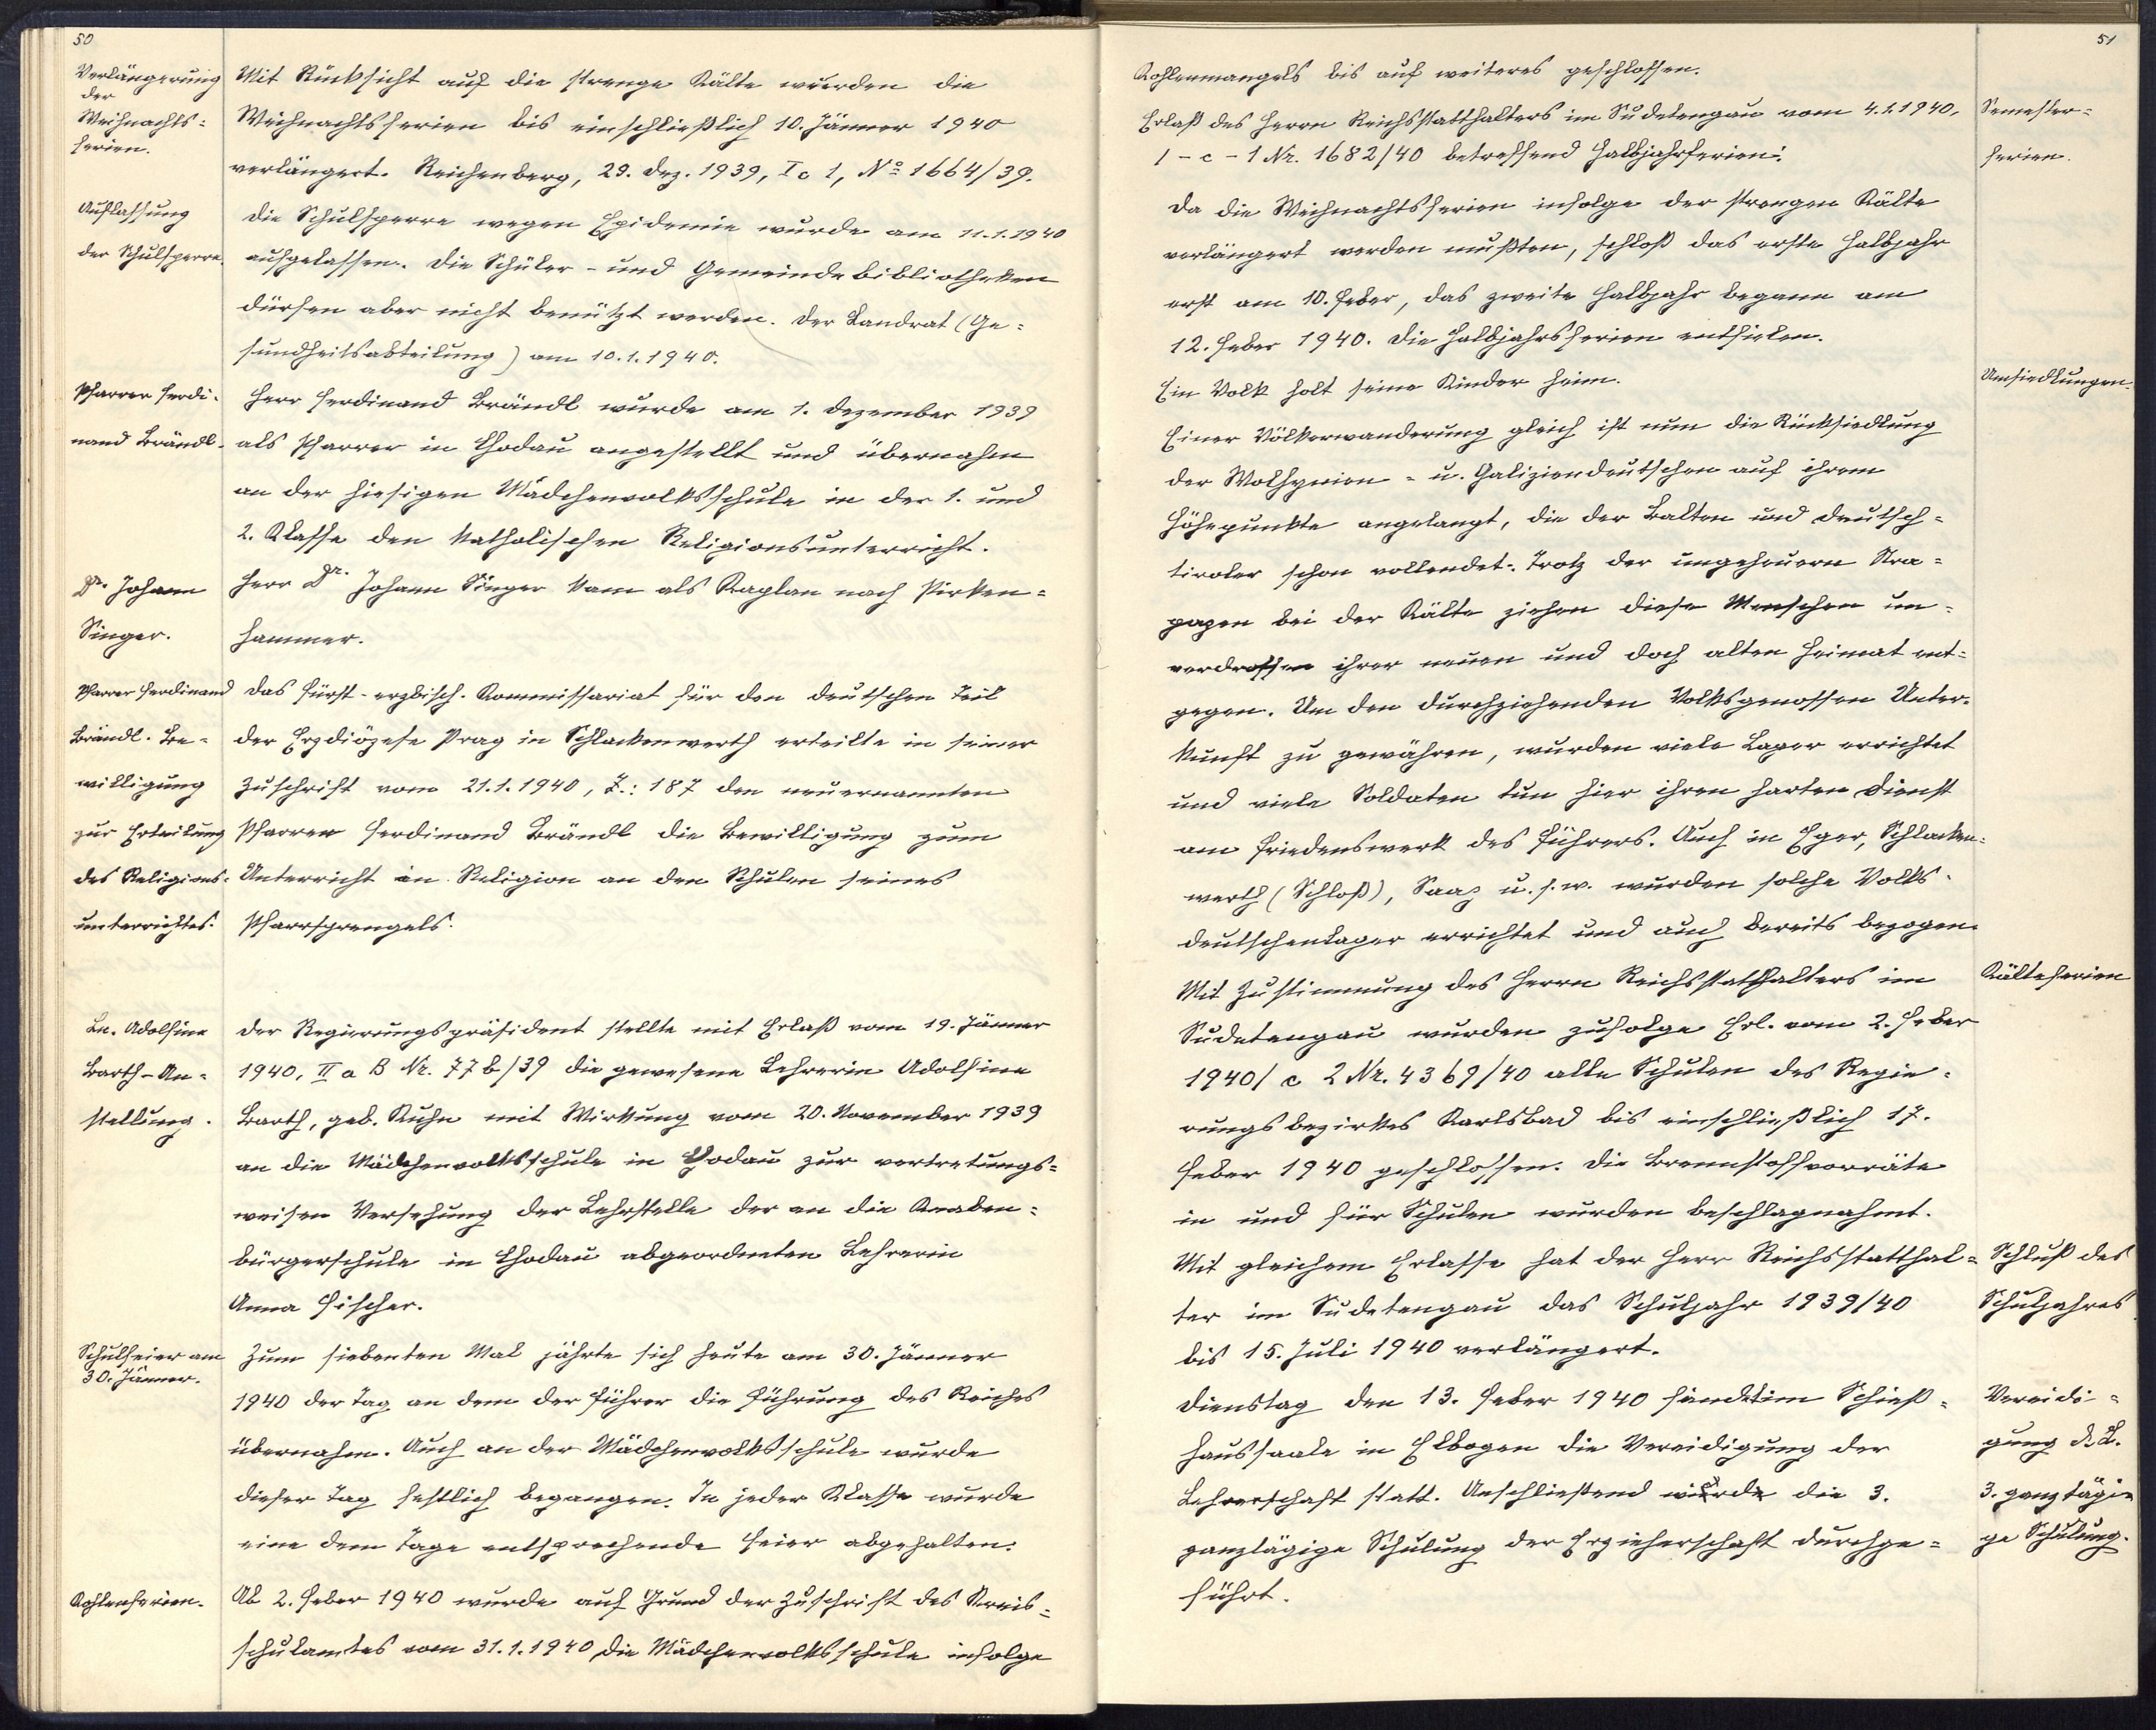 50
Verlängerung
der
Weihnachts=
ferien.
Mit Rücksicht auf die strenge Kälte wurden die
Weihnachtsferien bis einschließlich 10. Jänner 1940
verlängert. Reichenberg, 29. Dez. 1939, I c 1, No 1664/39.
Auflassung
der Schulsperre.
Die Schulsperre wegen Epidemie wurde am 11.1.1940
aufgelassen. Die Schüler- und Gemeindebibliotheken
dürfen aber nicht benützt werden. Der Landrat (Ge=
sundheitsabteilung) am 10.1.1940.
Pfarrer Ferdi=
nand Brändl.
Herr Ferdinand Brändl wurde am 1. Dezember 1939
als Pfarrer in Chodau angestellt und übernahm
an der hiesigen Mädchenvolksschule in der 1. und
2. Klasse den katholischen Religionsunterricht.
Dr. Johann
Singer.
Herr Dr. Johann Singer kam als Kaplan nach Pirken=
hammer.
Pfarrer Ferdinand
Brändl. Be=
willigung
zur Erteilung
des Religions=
unterrichtes.
Das fürst-erzbisch. Kommissariat für den deutschen Teil
der Erzdiözese Prag in Schlackenwerth erteilte in seiner
Zuschrift vom 21.1.1940, Z.: 187 den neuernannten
Pfarrer Ferdinand Brändl die Bewilligung zum
Unterricht in Religion an den Schulen seines
Pfarrsprengels.
Ln. Adolfine
Barth-An=
stellung.
Der Regierungspräsident stellte mit Erlaß vom 19. Jänner
1940, II a B Nr. 77 b/39 die gewesene Lehrerin Adolfine
Barth, geb. Kuhn mit Wirkung vom 20. November 1939
an die Mädchenvolksschule in Chodau zur vertretungs=
weisen Versehung der Lehrstelle der an die Knaben=
bürgerschule in Chodau abgeordneten Lehrerin
Anna Fischer.
Schulfeier am
30. Jänner.
Zum siebenten Mal jährte sich heute am 30. Jänner
1940 der Tag an dem der Führer die Führung des Reiches
übernahm. Auch an der Mädchenvolksschule wurde
dieser Tag festlich begangen. In jeder Klasse wurde
eine dem Tage entsprechende Feier abgehalten.
Kohlenferien.
Ab 2. Feber 1940 wurde auf Grund der Zuschrift des Kreis=
schulamtes vom 31.1.1940 die Mädchenvolksschule infolge
51
Kohlenmangels bis auf weiteres geschlossen.
Erlaß des Herrn Reichsstatthalters im Sudetengau vom 4.1.1940,
1 - c - 1 Nr. 1682/40 betreffend Halbjahrferien:
Semester=
ferien.
Da die Weihnachtsferien infolge der strengen Kälte
verlängert werden mußten, schloß das erste Halbjahr
erst am 10. Feber, das zweite Halbjahr begann am
12. Feber 1940. Die Halbjahrsferien entfielen.
Ein Volk holt seine Kinder heim.
Umsiedlungen.
Einer Völkerwanderung gleich ist nun die Rücksiedlung
der Wolhynien= u. Galiziendeutschen auf ihrem
Höhepunkte angelangt, die der Balten und Deutsch=
tiroler schon vollendet. Trotz der ungeheuern Stra=
pazen bei der Kälte ziehen diese Menschen un=
verdrossen ihrer neuen und doch alten Heimat ent=
gegen. Um den durchziehenden Volksgenossen Unter=
kunft zu gewähren, wurden viele Lager errichtet
und viele Soldaten tun hier ihren harten Dienst
am Friedenswerk des Führers. Auch in Eger, Schlacken=
werth (Schloß), Saaz u.s.w. wurden solche Volks=
deutschenlager errichtet und auch bereits bezogen.
Mit Zustimmung des Herrn Reichsstatthalters im
Kälteferien
Sudetengau wurden zufolge Erl. vom 2. Feber
1940 / c 2 Nr. 4369/40 alle Schulen des Regie=
rungsbezirkes Karlsbad bis einschließlich 17.
Feber 1940 geschlossen. Die Brennstoffvorräte
in und für Schulen wurden beschlagnahmt.
Mit gleichem Erlasse hat der Herr Reichsstatthal=
ter im Sudetengau das Schuljahr 1939/40
bis 15. Juli 1940 verlängert.
Schluß des
Schuljahres
Dienstag den 13. Feber 1940 fand im Schieß=
haussaale in Elbogen die Vereidigung der
Lehrerschaft statt. Anschließend wurde die 3.
ganztägige Schulung der Erzieherschaft durchge=
führt.
Vereidi=
gung d. L.
3. ganztägi=
ge Schulung.